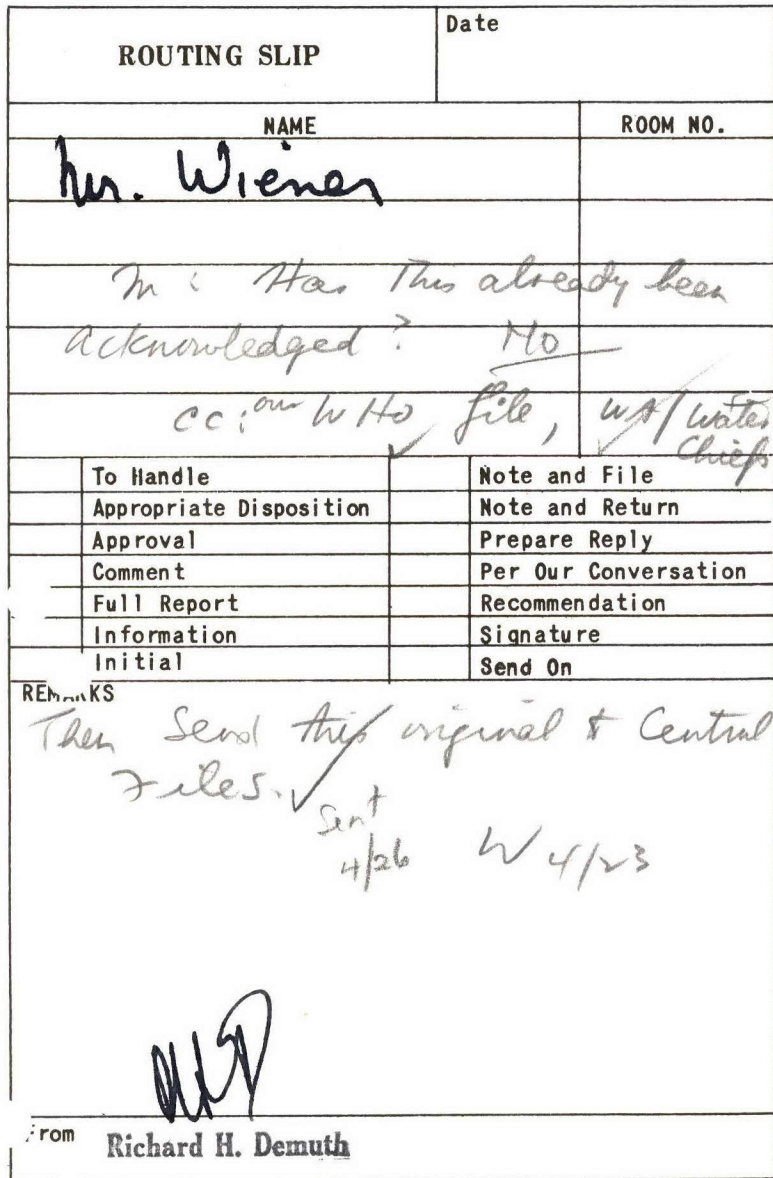 ROUTING SLIP
Date
NAME
ROOM NO.
Mr. Wiener
M: Has this already been
acknowledged? No
cc: our WHO file, WA/Water
Chiefs
To Handle
Note and File
Appropriate Disposition
Note and Return
Approval
Prepare Reply
Comment
Per Our Conversation
Full Report
Recommendation
Information
Signature
Initial
Send On
REMARKS
Then send this original to Central
Files.
Sent
4/26
W 4/23
RHD
From
Richard H. Demuth